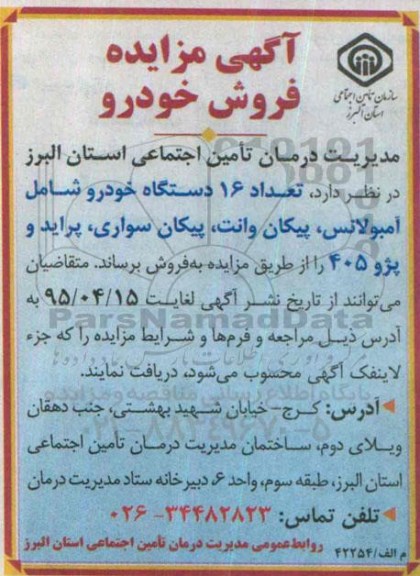 سازمان تأمین اجتماعی
استان البرز
آگهی مزایده
فروش خودرو
مدیریت درمان تأمین اجتماعی استان البرز
در نظر دارد، تعداد ۱۶ دستگاه خودرو شامل
آمبولانس، پیکان وانت، پیکان سواری، پراید و
پژو ۴۰۵ را از طریق مزایده به‌فروش برساند. متقاضیان
می‌توانند از تاریخ نشر آگهی لغایت ۹۵/۰۴/۱۵ به
آدرس ذیل مراجعه و فرم‌ها و شرایط مزایده را که جزء
لاینفک آگهی محسوب می‌شود، دریافت نمایند.
آدرس: کرج- خیابان شهید بهشتی، جنب دهقان
ویلای دوم، ساختمان مدیریت درمان تأمین اجتماعی
استان البرز، طبقه سوم، واحد ۶، دبیرخانه ستاد مدیریت درمان
تلفن تماس: ۳۴۴۸۲۸۲۳- ۰۲۶
روابط‌عمومی مدیریت درمان تأمین اجتماعی استان البرز
م الف/۴۲۲۵۴
ParsNamadData
پایگاه اطلاع رسانی مناقصه و مزایده
۰۲۱-۸۸۳۴۹۶۷۰-۵